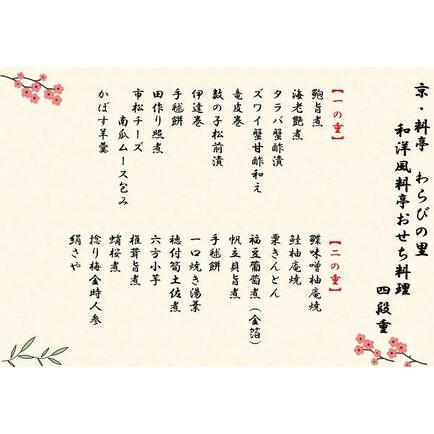 京・料亭 わらびの里
和洋風料亭おせち料理
四段重
【一の重】
鮑旨煮
海老艶煮
タラバ蟹酢漬
ズワイ蟹甘酢和え
竜皮巻
数の子松前漬
伊達巻
手毬餅
田作り照煮
市松チーズ
南瓜ムース包み
かぼす羊羹
【二の重】
鰈味噌柚庵焼
鮭柚庵焼
栗きんとん
福豆葡萄煮（金箔）
帆立貝旨煮
手毬餅
一口焼き湯葉
穂付筍土佐煮
六方小芋
椎茸旨煮
蛸桜煮
捻り梅金時人参
絹さや